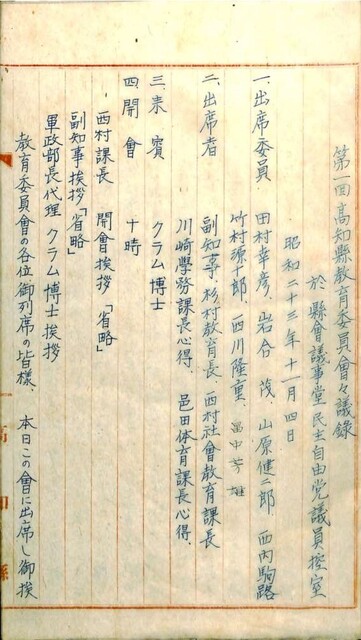 第一回高知縣教育委員會々議錄
於縣會議事堂民主自由党議員控室
昭和二十三年十一月四日
一、出席委員 田村幸彦、岩合茂、山原健二郎 西内駒路
竹村源十郎、西川隆重、畠中芳雄
二、出席者 副知事、杉村教育長、西村社會教育課長
川崎學務課長心得、邑田体育課長心得、
三、来賓 クラム博士
四、開會 十時
西村課長 開會挨拶「省略」
副知事挨拶「省略」
軍政部長代理 クラム博士挨拶
教育委員會の各位御列席の皆様、本日この會に出席し御挨
高知縣